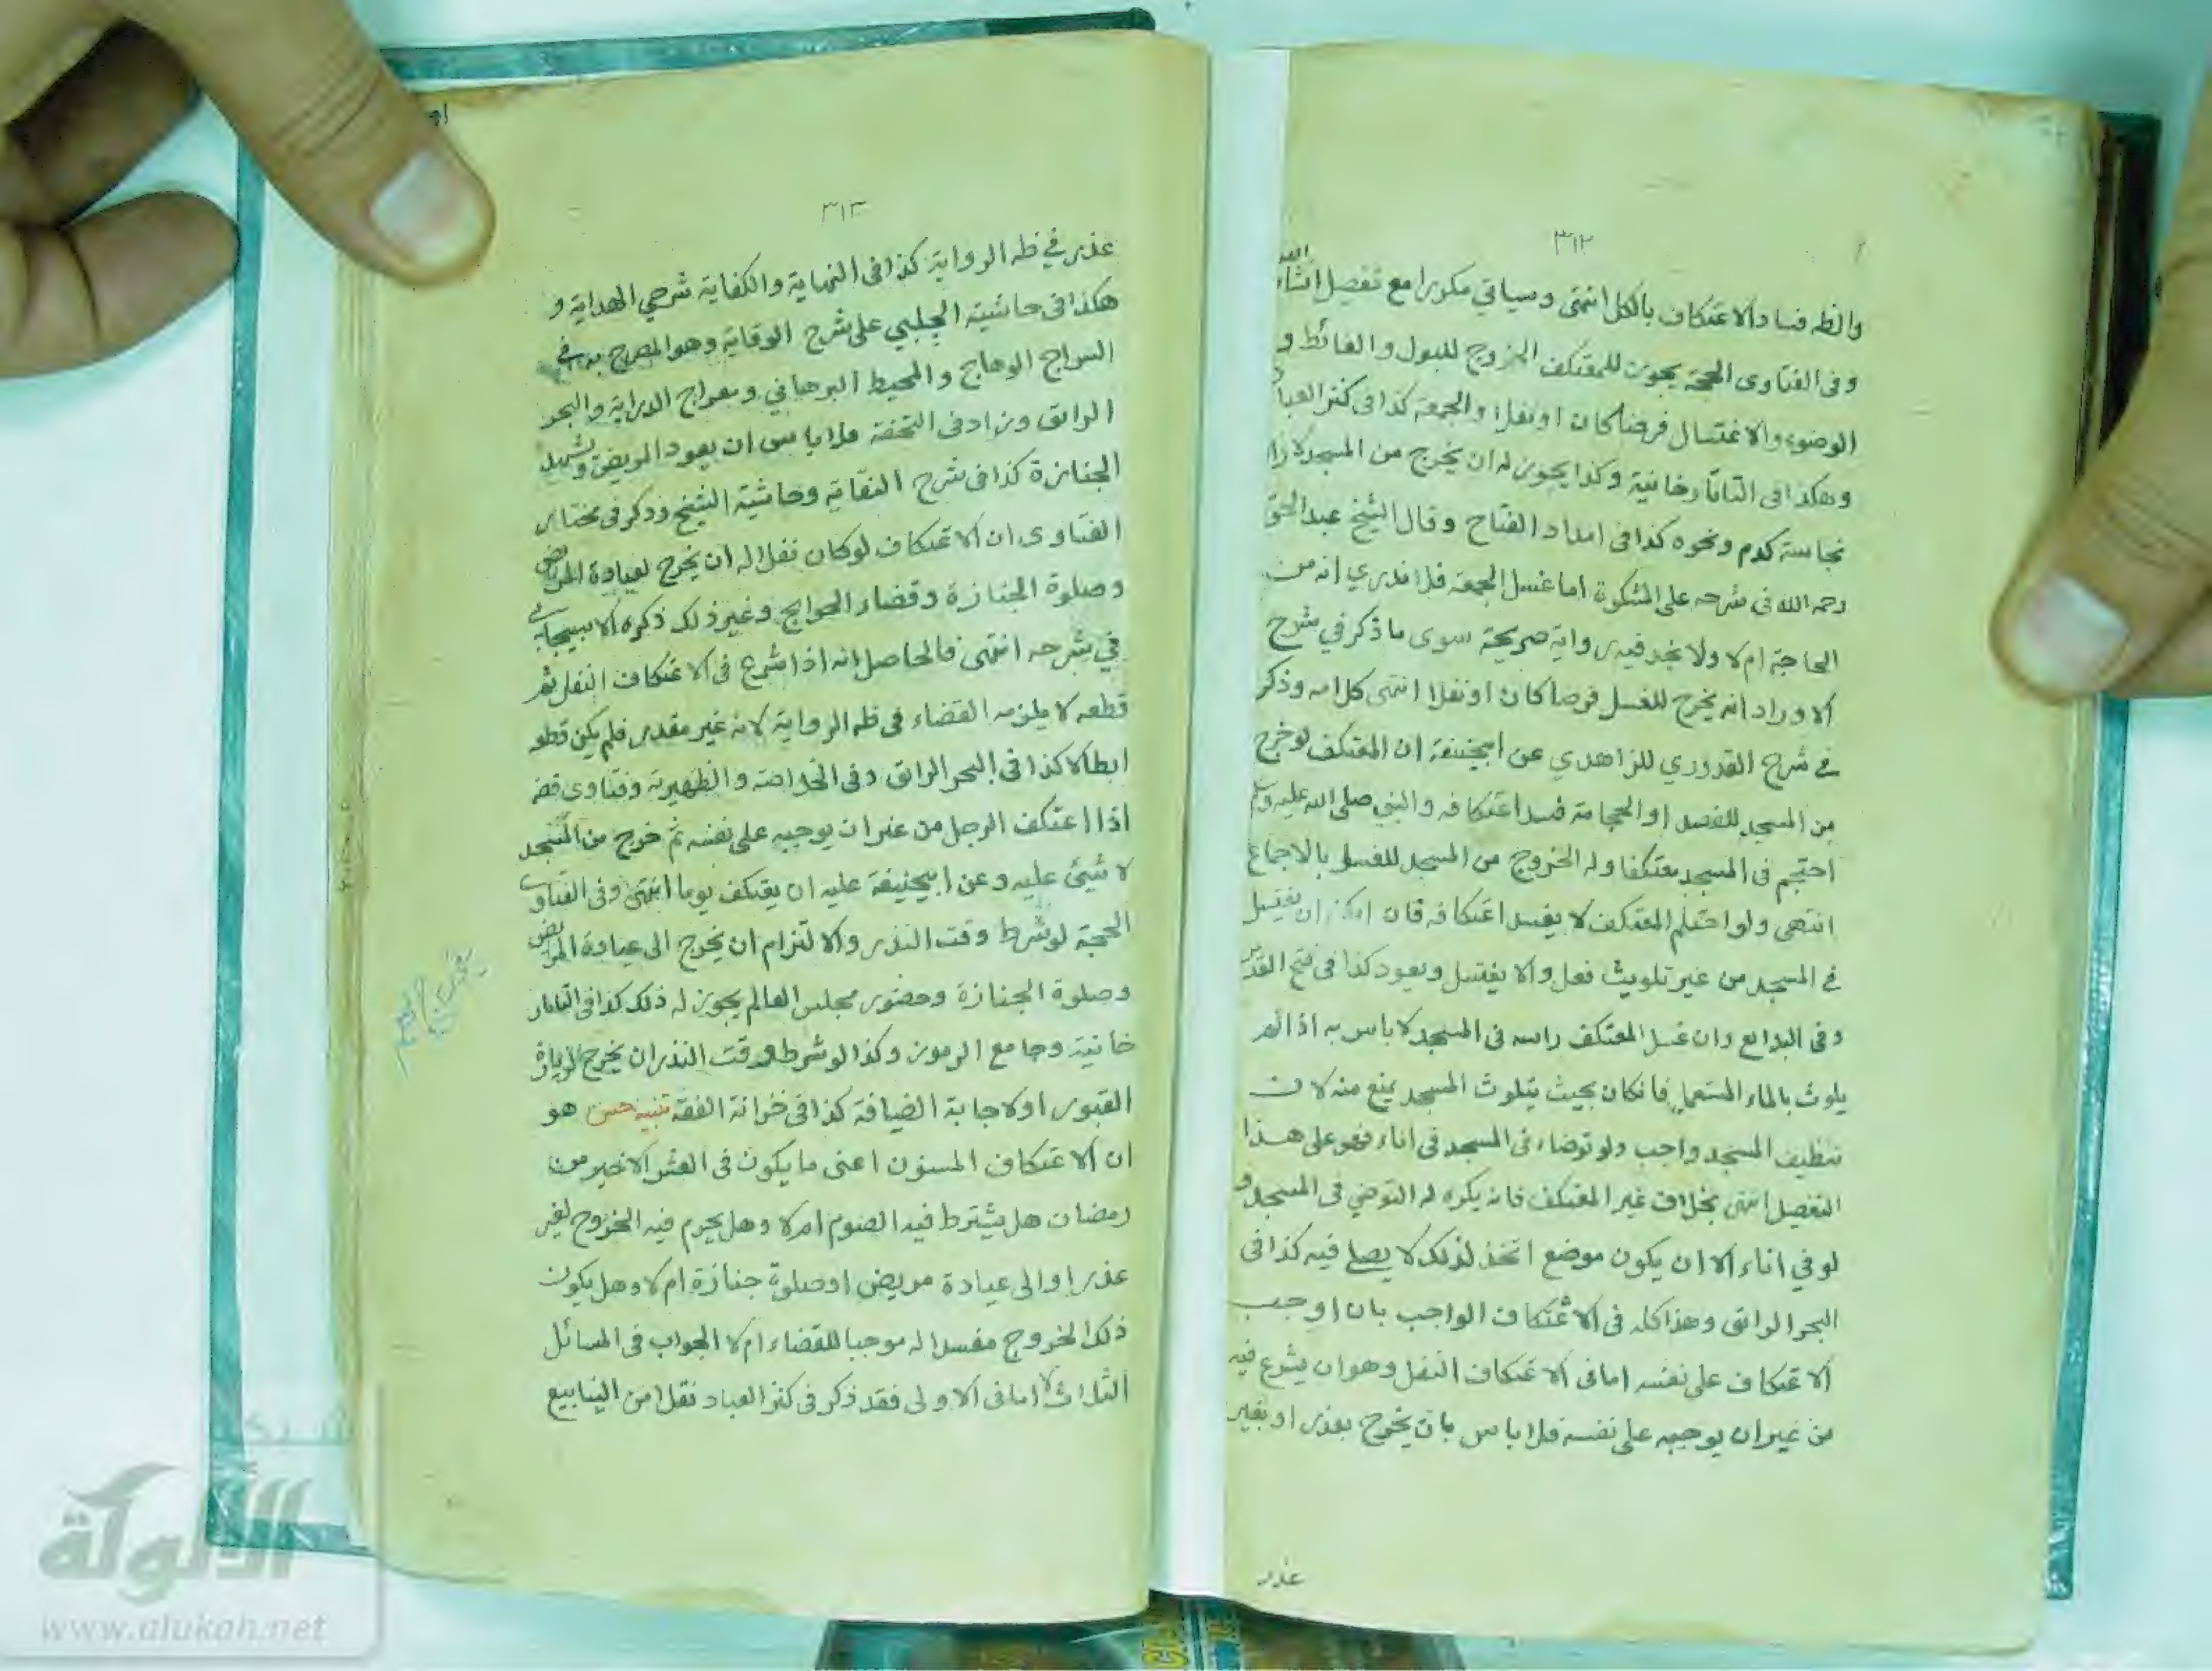 ٣١٢
والظه فساد الاعتكاف بالكل انتهى وسياتي مكررا مع تفصيل انشاء الله
وفى الفتاوى الحجة يجوز للمعتكف الخروج للبول والغائط و
الوضوء والاغتسال فرضا كان او نفلا والجمعة كذا فى كنز العباد
وهكذا فى التاتارخانية وكذا يجوز له ان يخرج من المسجد لازالة
نجاسة كدم ونحوه كذا فى امداد الفتاح وقال الشيخ عبد الحق
رحمه الله فى شرحه على المشكوة اما غسل الجمعة فلا ندري انه من
الحاجة ام لا ولا نجد فيه رواية صريحة سوى ما ذكر في شرح
الاوراد انه يخرج للغسل فرضا كان او نفلا انتهى كلامه وذكر
في شرح القدوري للزاهدي عن ابيحنيفة ان المعتكف لو خرج
من المسجد للفصد او الحجامة فسد اعتكافه والنبي صلى الله عليه وسلم
احتجم فى المسجد معتكفا وله الخروج من المسجد للغسل بالاجماع
انتهى ولو احتلم المعتكف لا يفسد اعتكافه فان امكنه ان يغتسل
في المسجد من غير تلويث فعل والا يغتسل ويعود كذا فى فتح القدير
وفى البدائع وان غسل المعتكف راسه فى المسجد لا باس به اذا لم
يلوث بالماء المستعمل فانكان بحيث يتلوث المسجد يمنع منه لان
تنظيف المسجد واجب ولو توضاء فى المسجد فى اناء فهو على هذا
التفصيل انتهى بخلاف غير المعتكف فانه يكره له التوضي فى المسجد و
لو في اناء الا ان يكون موضع اتخذ لذلك لا يصلے فيه كذا فى
البحر الرائق وهذا كله فى الاعتكاف الواجب بان اوجب
الاعتكاف على نفسه اما فى الاعتكاف النفل وهو ان يشرع فيه
من غير ان يوجبه على نفسه فلا باس بان يخرج بعذر او بغير
عذر
٣١٣
عذر في ظه الرواية كذا فى النهاية والكفاية شرحي الهداية و
هكذا فى حاشية الچلبي على شرح الوقاية وهو المصرح به في
السراج الوهاج والمحيط البرهاني ومعراج الدراية والبحر
الرائق وزاد فى التحفة فلا باس ان يعود المريض ويشهد
الجنازة كذا فى شرح النقاية وحاشية الشيخ وذكر فى مختار
الفتاوى ان الاعتكاف لو كان نفلا له ان يخرج لعيادة المريض
وصلوة الجنازة وقضاء الحوايج وغير ذلك ذكره الاسبيجابي
في شرحه انتهى فالحاصل انه اذا شرع فى الاعتكاف النفل ثم
قطعه لا يلزمه القضاء فى ظه الرواية لانه غير مقدر فلم يكن قطعه
ابطالا كذا فى البحر الرائق وفى الخلاصة والظهيرية وفتاوى قضه
اذا اعتكف الرجل من غير ان يوجبه على نفسه ثم خرج من المسجد
لا شيئ عليه وعن ابيحنيفة عليه ان يعتكف يوما انتهى وفى الفتاوى
الحجة لو شرط وقت النذر والالتزام ان يخرج الى عيادة المريض
وصلوة الجنازة وحضور مجلس العالم يجوز له ذلك كذا فى التاتار
خانية وجامع الرموز وكذا لو شرط وقت النذر ان يخرج لزيارة
القبور او لاجابة الضيافة كذا فى خزانة الفقه تنبيه حسن هو
ان الاعتكاف المسنون اعنى ما يكون فى العشر الاخير من
رمضان هل يشترط فيه الصوم ام لا وهل يحرم فيه الخروج لغير
عذر او الى عيادة مريض او صلوة جنازة ام لا وهل يكون
ذلك الخروج مفسدا له موجبا للقضاء ام لا الجواب فى المسائل
الثلاث لا اما فى الاولى فقد ذكر فى كنز العباد نقلا من الينابيع
الألوكة
www.alukah.net